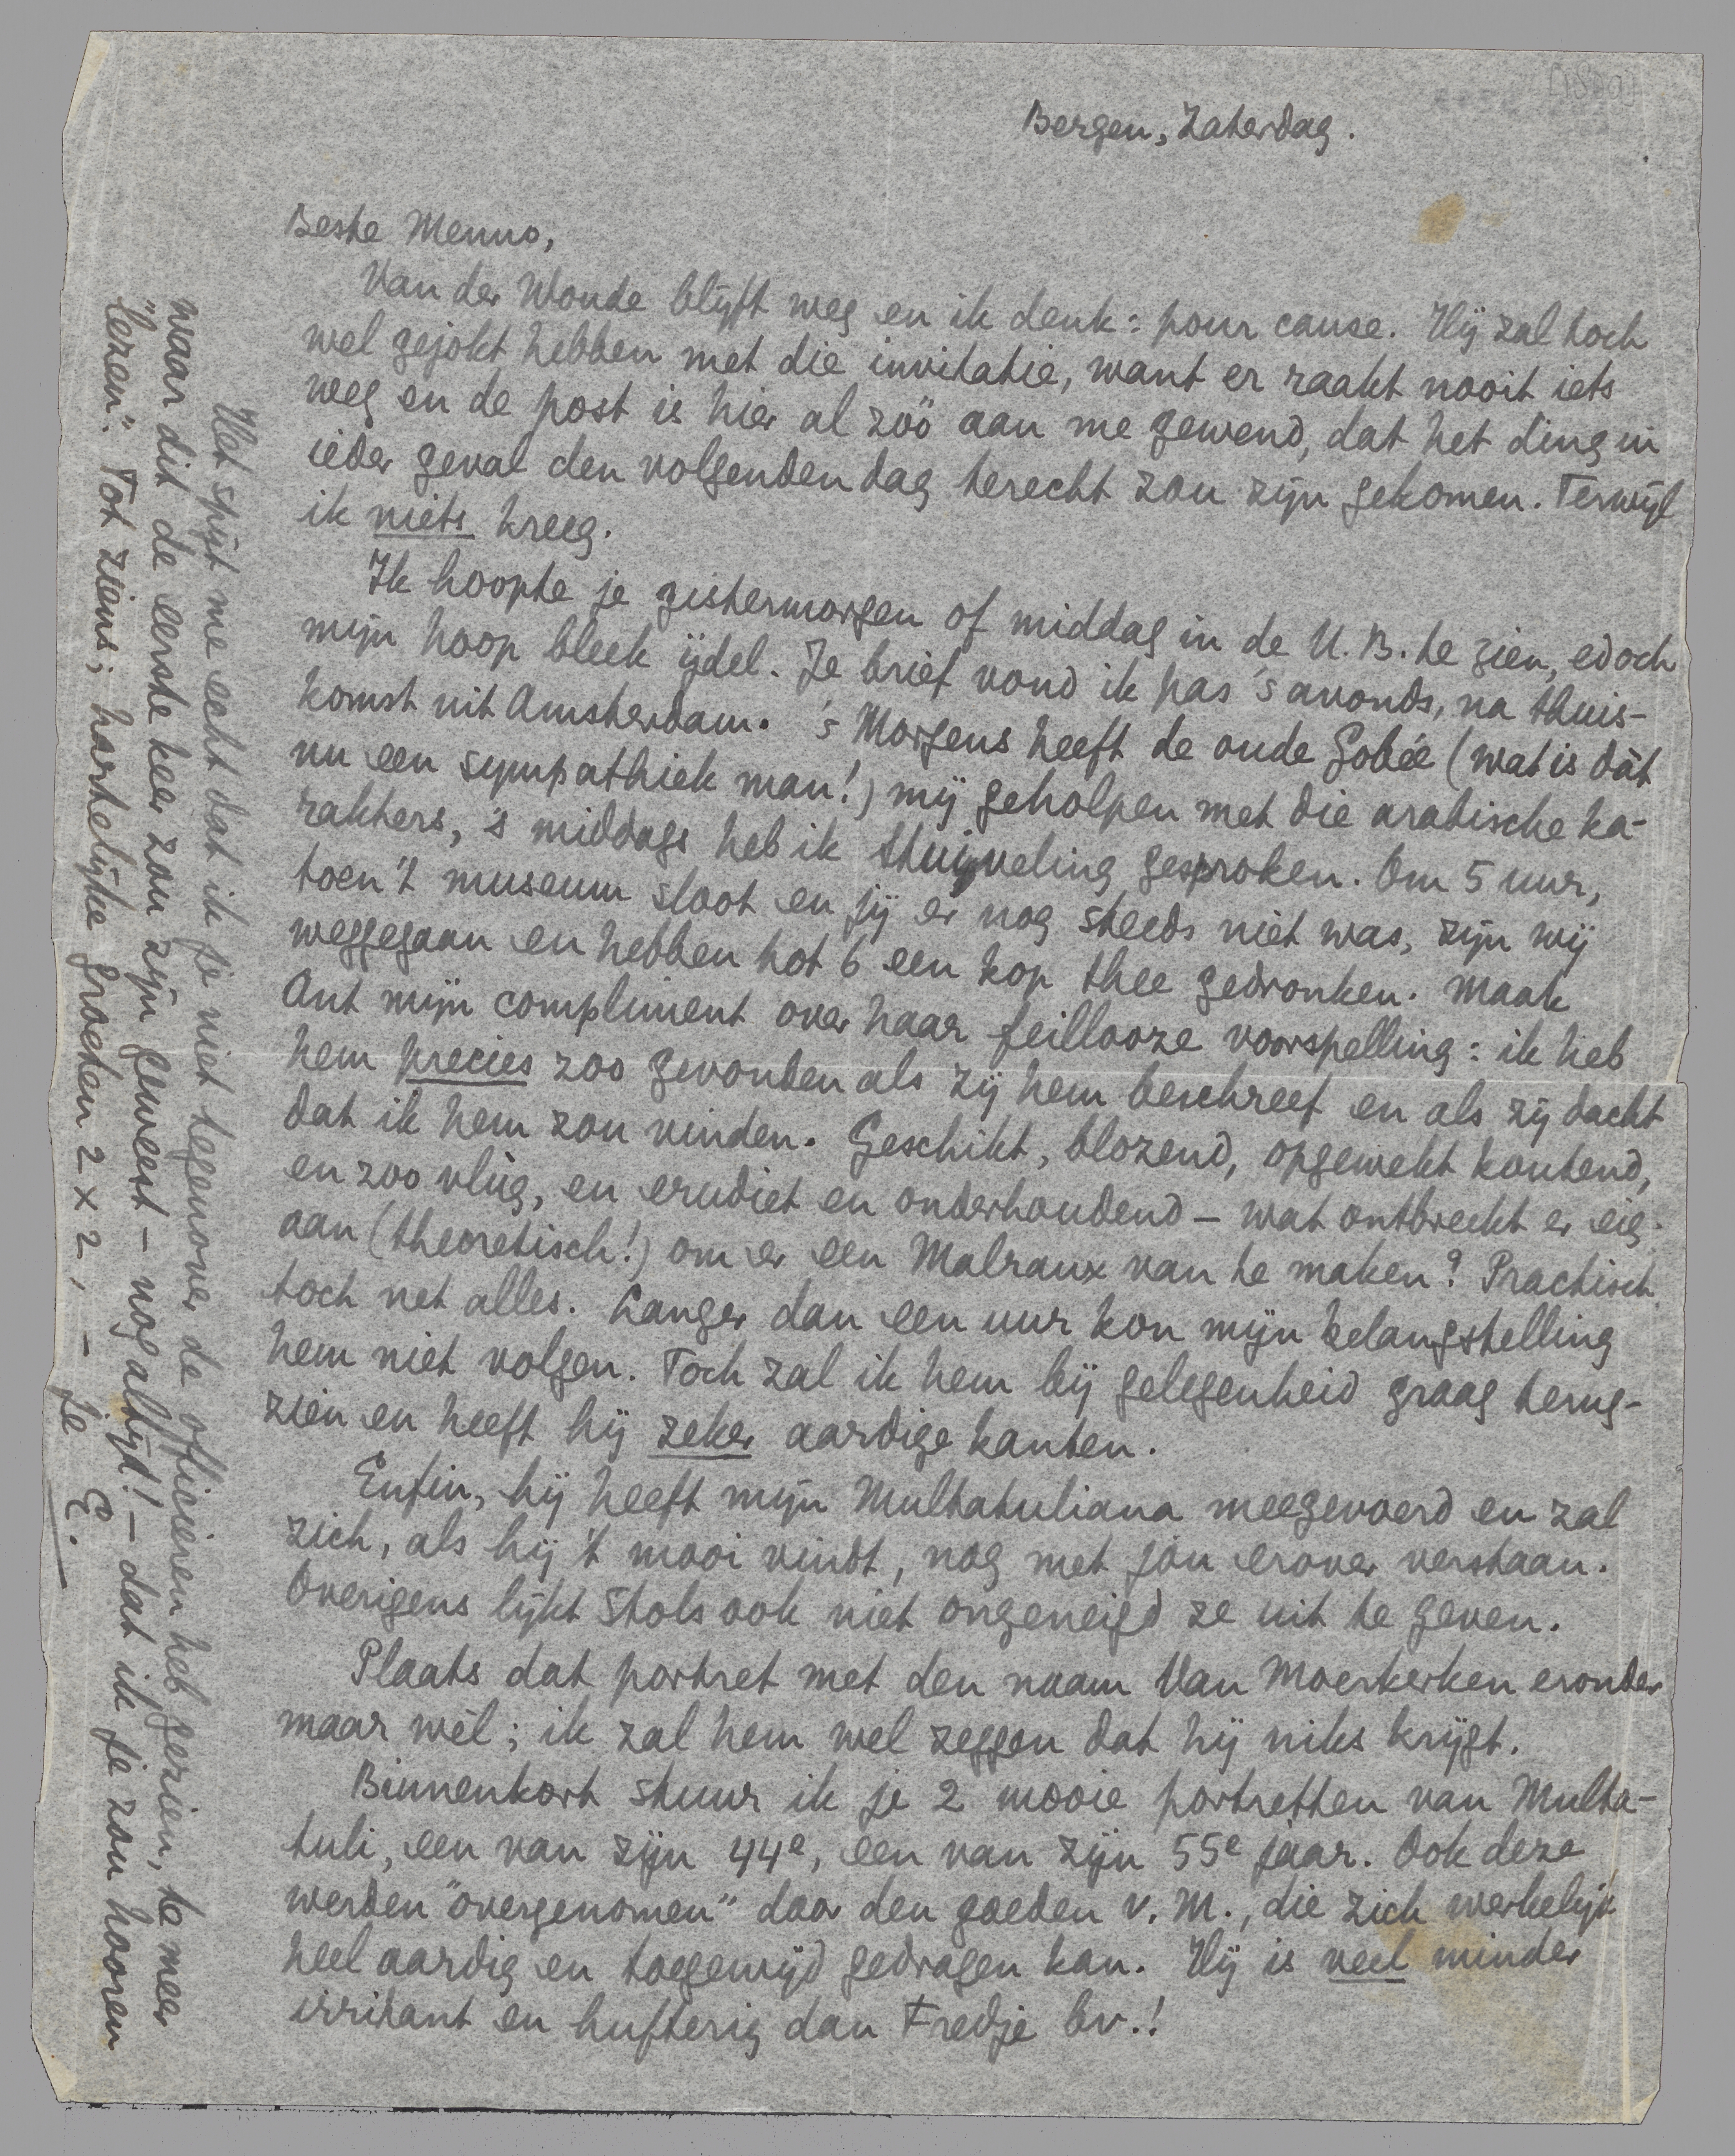 Bergen, Zaterdag.
Beste Menno,
Van der Woude blijft weg en ik denk: pour cause. Hij zal toch
wel gejokt hebben met die invitatie, want er raakt nooit iets
weg en de post is hier al zóó aan me gewend, dat het ding in
ieder geval den volgenden dag terecht zou zijn gekomen. Terwijl
ik niets kreeg.
Ik hoopte je gistermorgen of middag in de U.B. te zien, edoch
mijn hoop bleek ijdel. Je brief vond ik pas 's avonds, na thuis-
komst uit Amsterdam. 's Morgens heeft de oude Gobée (wat is dàt
nu een sympathiek man!) mij geholpen met die arabische ka-
rakters, 's middags heb ik Stuiveling gesproken. Om 5 uur,
toen 't museum sloot en jij er nog steeds niet was, zijn wij
weggegaan en hebben tot 6 een kop thee gedronken. Maak
Ant mijn compliment over haar feillooze voorspelling: ik heb
hem precies zoo gevonden als zij hem beschreef en als zij dacht
dat ik hem zou vinden. Geschikt, blozend, opgewekt koutend,
en zoo vlug, en erudiet en onderhoudend – wat ontbreekt er eig.
aan (theoretisch!) om er een Malraux van te maken? Practisch
toch net alles. Langer dan een uur kon mijn belangstelling
hem niet volgen. Toch zal ik hem bij gelegenheid graag terug-
zien en heeft hij zeker aardige kanten.
Enfin, hij heeft mijn Multatuliana meegevoerd en zal
zich, als hij 't mooi vindt, nog met jou erover verstaan.
Overigens lijkt Stols ook niet ongeneigd ze uit te geven.
Plaats dat portret met den naam Van Moerkerken eronder
maar wèl; ik zal hem wel zeggen dat hij niks krijgt.
Binnenkort stuur ik je 2 mooie portretten van Multa-
tuli, een van zijn 44e, een van zijn 55e jaar. Ook deze
werden "overgenomen" door den goeden v. M., die zich werkelijk
heel aardig en toegewijd gedragen kan. Hij is veel minder
irritant en hufterig dan Fredje bv.!
Het spijt me echt dat ik je niet tegenover de officieren heb gezien, te meer
waar dit de eerste keer zou zijn geweest – nog altijd! – dat ik je zou hooren
"lezen". Tot ziens; hartelijke groeten 2 x 2, –
Je E.